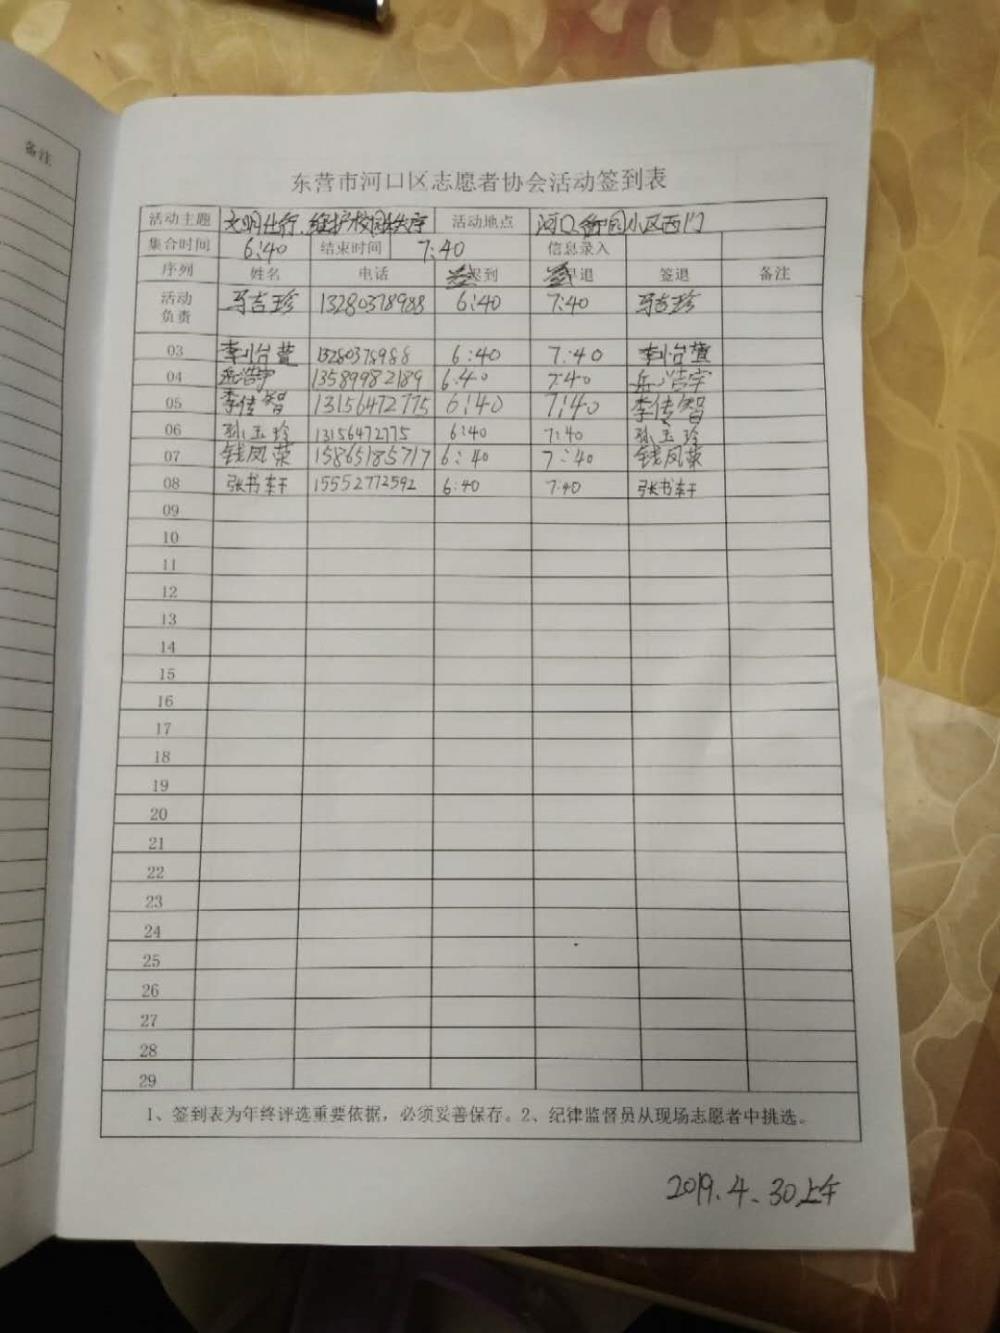 备注
东营市河口区志愿者协会活动签到表
活动主题 文明出行、维护校园秩序 活动地点 河口御园小区西门
集合时间 6:40 结束时间 7:40 信息录入
序列 姓名 电话 迟到 早退 签退 备注
活动负责 马吉珍 13280378988 6:40 7:40 马吉珍
03 李怡萱 13280378988 6:40 7:40 李怡萱
04 岳浩宇 13589982189 6:40 7:40 岳浩宇
05 李传智 13156472775 6:40 7:40 李传智
06 孙玉玲 13156472775 6:40 7:40 孙玉玲
07 钱凤荣 15865185717 6:40 7:40 钱凤荣
08 张书轩 15552772592 6:40 7:40 张书轩
09
10
11
12
13
14
15
16
17
18
19
20
21
22
23
24
25
26
27
28
29
1、签到表为年终评选重要依据，必须妥善保存。2、纪律监督员从现场志愿者中挑选。
2019.4.30上午